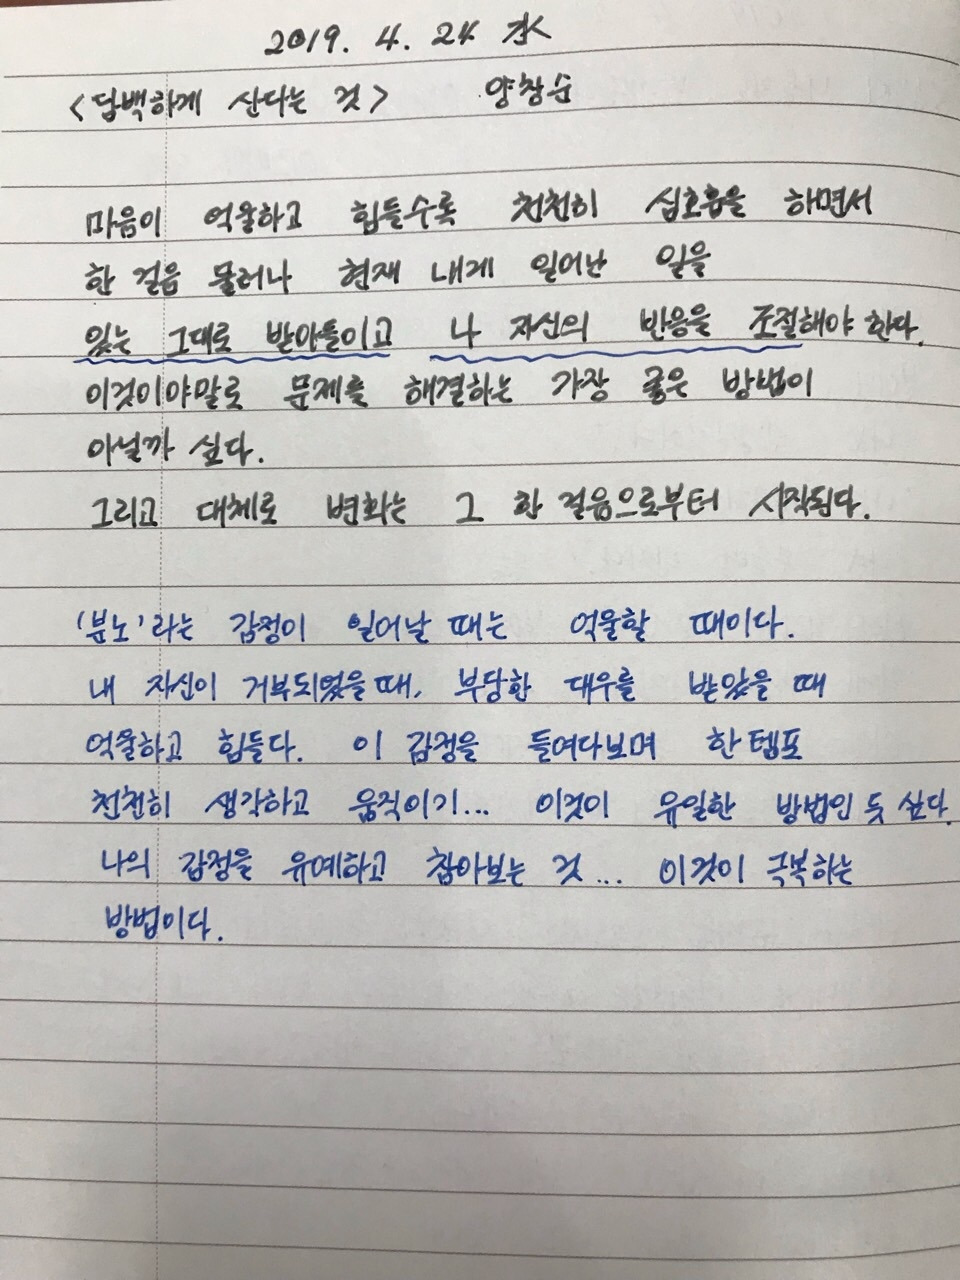 2019. 4. 24 水
<담백하게 산다는 것> 양창순
마음이 억울하고 힘들수록 천천히 심호흡을 하면서
한 걸음 물러나 현재 내게 일어난 일을
있는 그대로 받아들이고 나 자신의 반응을 조절해야 한다.
이것이야말로 문제를 해결하는 가장 좋은 방법이
아닐까 싶다.
그리고 대체로 변화는 그 한 걸음으로부터 시작된다.
'분노'라는 감정이 일어날 때는 억울할 때이다.
내 자신이 거부되었을 때, 부당한 대우를 받았을 때
억울하고 힘들다. 이 감정을 들여다보며 한 템포
천천히 생각하고 움직이기... 이것이 유일한 방법인 듯 싶다.
나의 감정을 유예하고 참아보는 것... 이것이 극복하는
방법이다.